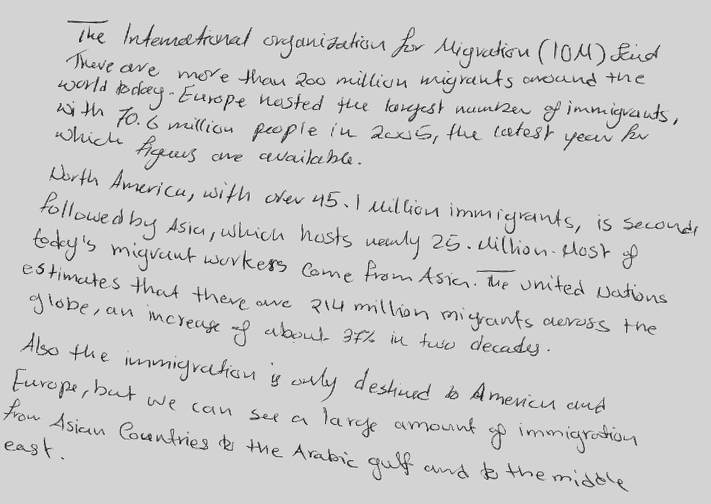 The International organization for Migration (IOM) Said
There are more than 200 million migrants around the
world today. Europe hosted the largest number of immigrants,
with 70.6 million people in 2005, the latest year for
which figures are available.
North America, with over 45.1 million immigrants, is second,
followed by Asia, which hosts nearly 25. Million. Most of
today's migrant workers Come from Asia. The united Nations
estimates that there are 214 million migrants across the
globe, an increase of about 37% in two decades.
Also the immigration is only destined to America and
Europe, but we can see a large amount of immigration
from Asian Countries to the Arabic gulf and to the middle
east.